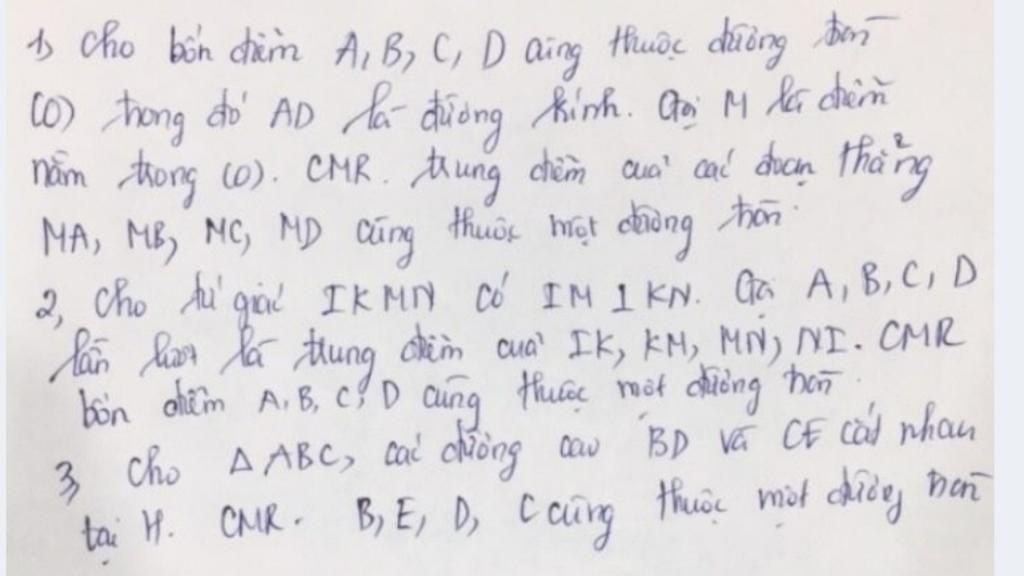 1) Cho bốn điểm A, B, C, D cùng thuộc đường tròn
(O) trong đó AD là đường kính. Gọi M là điểm
nằm trong (O). CMR. trung điểm của các đoạn thẳng
MA, MB, MC, MD cùng thuộc một đường tròn.
2, Cho tứ giác IKMN có IM ⊥ KN. Gọi A, B, C, D
lần lượt là trung điểm của IK, KM, MN, NI. CMR
bốn điểm A, B, C, D cùng thuộc một đường tròn.
3, Cho Δ ABC, các đường cao BD và CE cắt nhau
tại H. CMR. B, E, D, C cùng thuộc một đường tròn